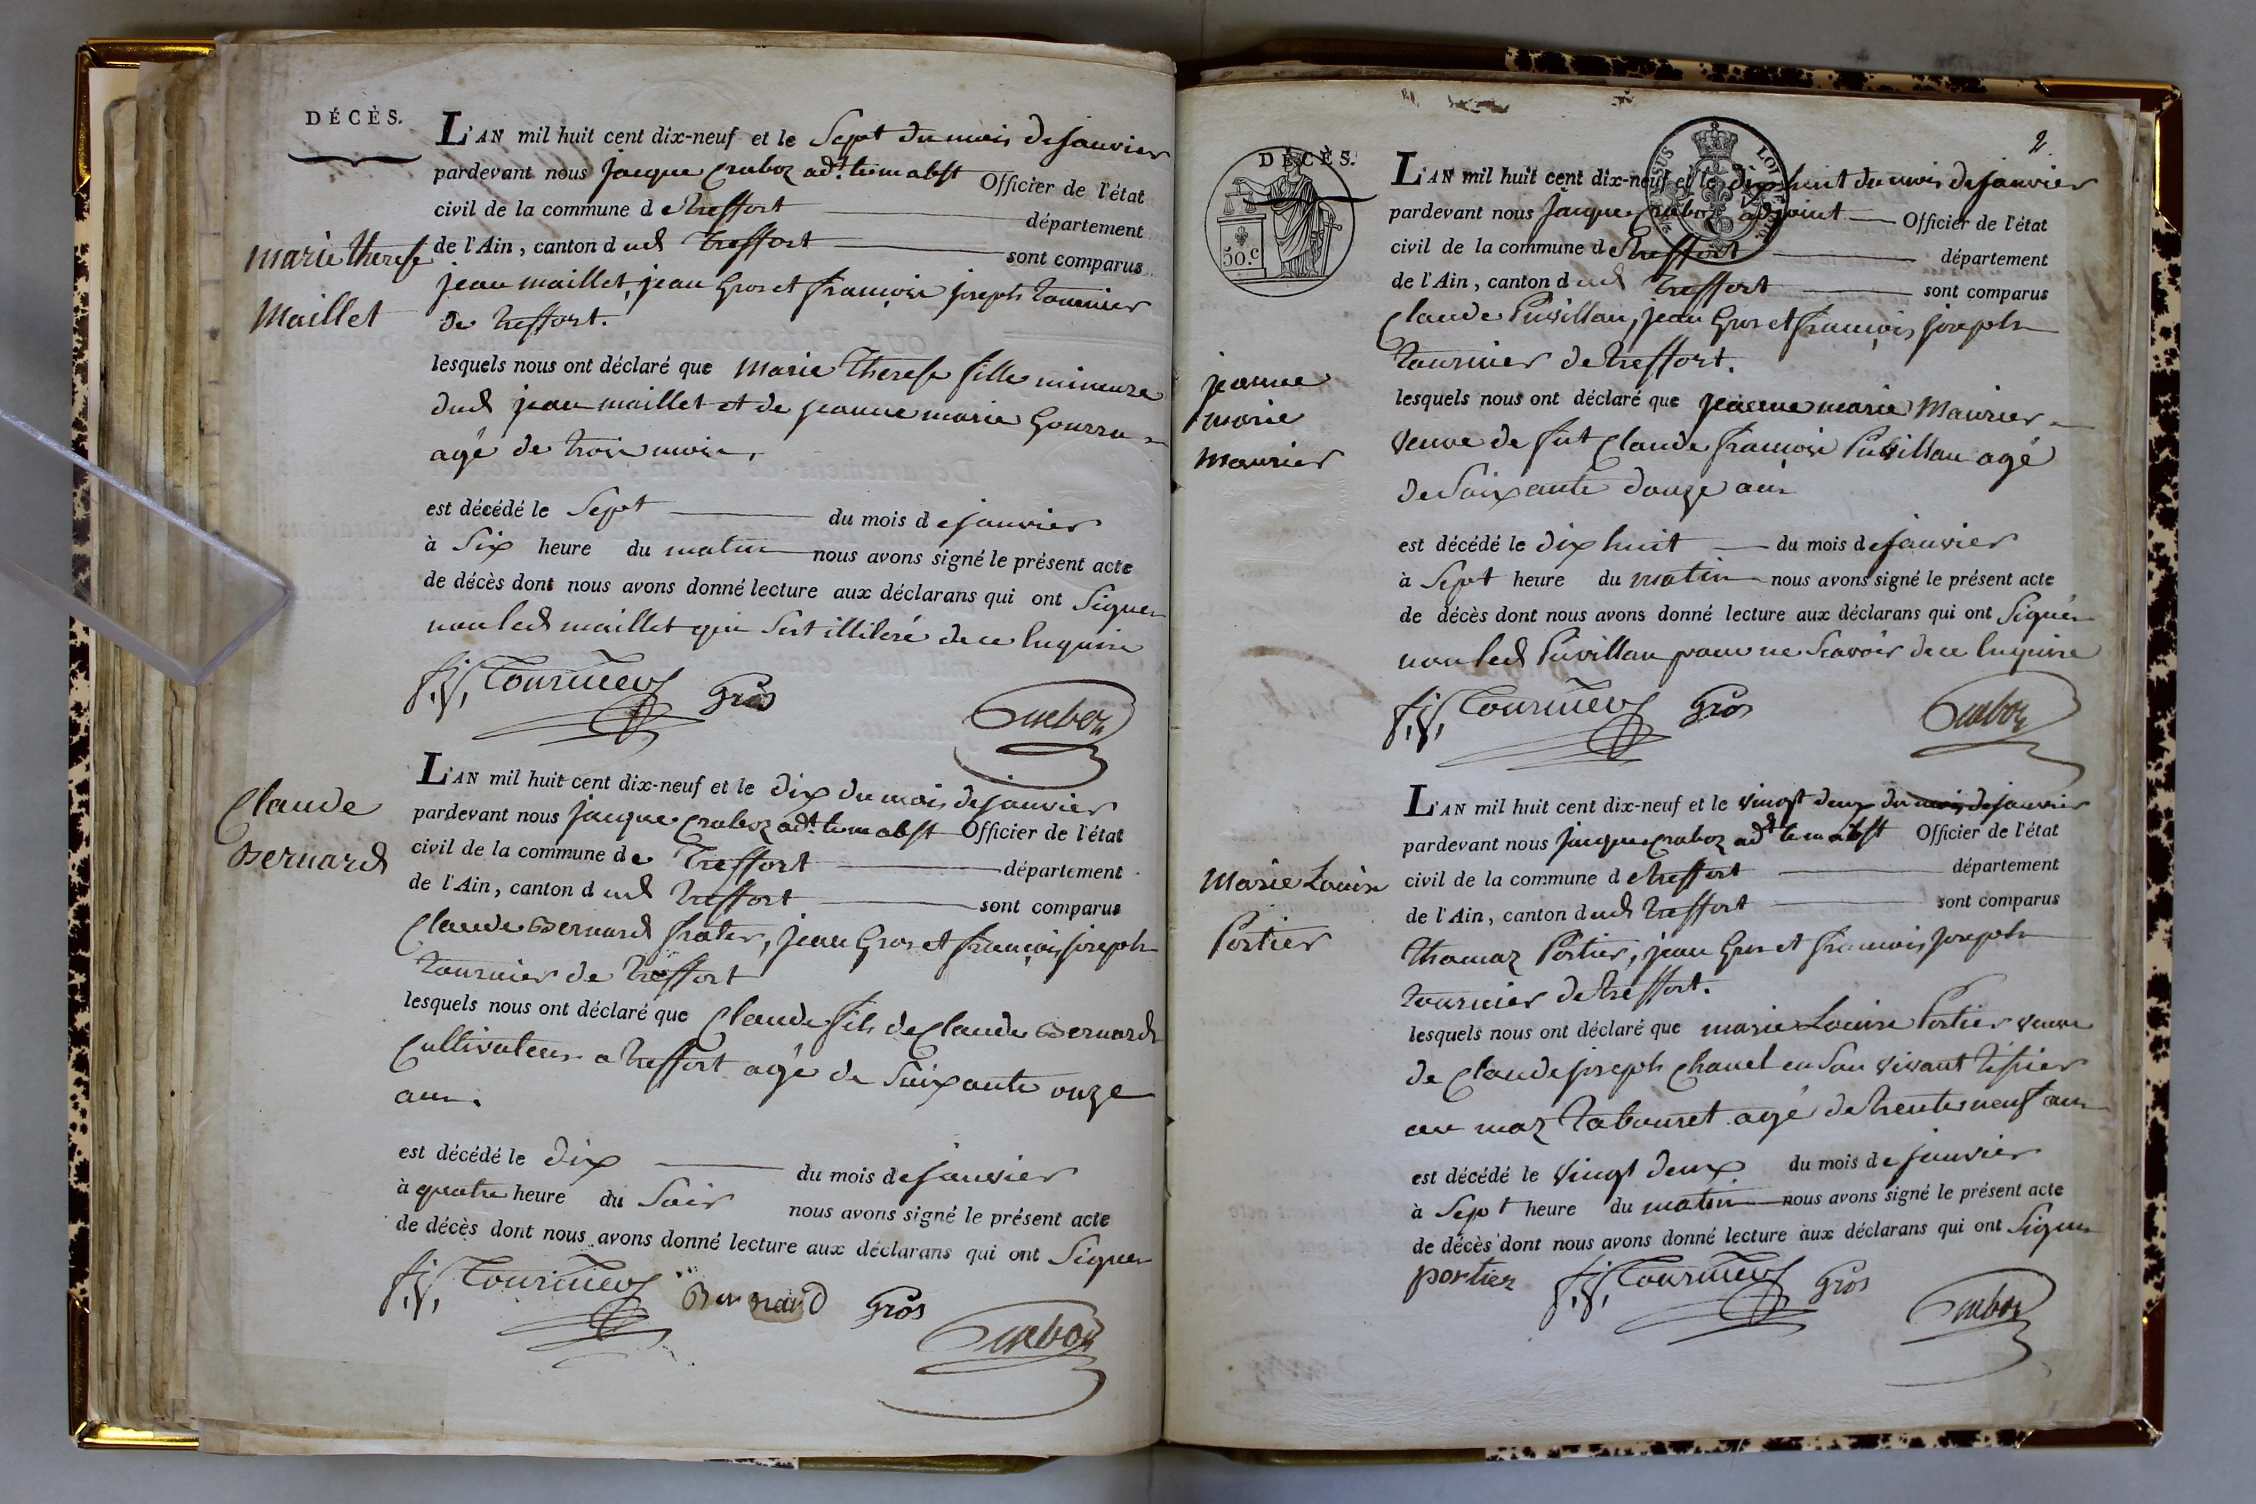 DÉCÈS.
L'AN mil huit cent dix-neuf et le Sept du mois de janvier
pardevant nous jacque Craboz adt. le m abst Officier de l'état
civil de la commune de treffort département
de l'Ain, canton dudt treffort sont comparus
jean maillet, jean Gros et françois joseph tournier
de treffort.
marie therese
Maillet
lesquels nous ont déclaré que marie therese fille mineure
dudt jean maillet et de jeanne marie Gourru
agé de trois mois.
est décédé le Sept du mois de janvier
à Six heure du matin nous avons signé le présent acte
de décès dont nous avons donné lecture aux déclarans qui ont Signer
non ledt maillet qui s'est illiteré de ce Enquire
f. j. Tournier Gros Craboz
Claude
Bernard
L'AN mil huit cent dix-neuf et le dix du mois de janvier
pardevant nous jacque Craboz adt. le m abst Officier de l'état
civil de la commune de treffort département
de l'Ain, canton dudt treffort sont comparus
Claude Bernard frater, jean Gros et françois joseph
tournier de treffort
lesquels nous ont déclaré que Claude fils de Claude Bernard
Cultivateur a treffort agé de Soixante onze
ans.
est décédé le dix du mois de janvier
à quatre heure du Soir nous avons signé le présent acte
de décès dont nous avons donné lecture aux déclarans qui ont Signer
f. j. Tournier Bernard Gros Craboz
2
DÉCÈS.
50.c
L'AN mil huit cent dix-neuf et le dix huit du mois de janvier
pardevant nous jacque Craboz adjoint Officier de l'état
civil de la commune de treffort département
de l'Ain, canton dudt treffort sont comparus
Claude Puvillan, jean Gros et françois joseph
tournier de treffort.
jeanne
marie
maurier
lesquels nous ont déclaré que jeanne marie Maurier
veuve de fut Claude françois Puvillan agé
de Soixante douze ans
est décédé le dix huit du mois de janvier
à Sept heure du matin nous avons signé le présent acte
de décès dont nous avons donné lecture aux déclarans qui ont Signer
non ledt Puvillan pour ne Scavoir de ce Enquire
f. j. Tournier Gros Craboz
L'AN mil huit cent dix-neuf et le vingt deux du mois de janvier
pardevant nous jacque Craboz adt le m abst Officier de l'état
civil de la commune de treffort département
de l'Ain, canton dudt treffort sont comparus
thomaz Portier, jean Gros et françois joseph
tournier de treffort.
Marie Louise
Portier
lesquels nous ont déclaré que marie Louise Portier veuve
de Claude joseph Chanel en Son vivant tissier
au maz tabouret agé de trente neuf ans
est décédé le vingt deux du mois de janvier
à Sept heure du matin nous avons signé le présent acte
de décès dont nous avons donné lecture aux déclarans qui ont Signer
portier f. j. Tournier Gros Craboz